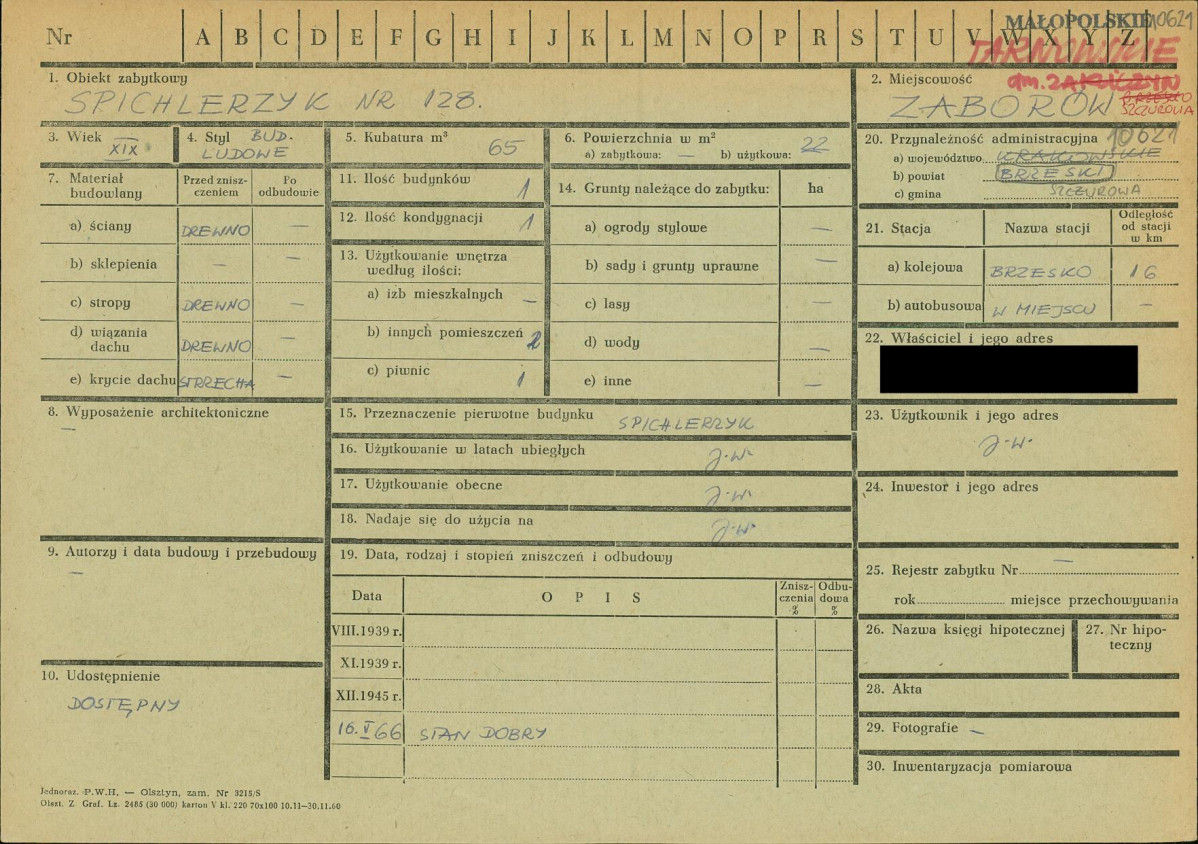 MAŁOPOLSKIE 10621
Nr A B C D E F G H I J K L M N O P R S T U V W X Y Z
TARNOWSKIE
gm. ZAKLICZYN
1. Obiekt zabytkowy
SPICHLERZYK NR 128.
2. Miejscowość
ZABORÓW
BRZESKO
SZCZUROWA
3. Wiek XIX
4. Styl BUD.
LUDOWE
5. Kubatura m³
65
6. Powierzchnia w m²
a) zabytkowa: — b) użytkowa: 22
7. Materiał budowlany
Przed znisz-
czeniem
Po
odbudowie
a) ściany DREWNO —
b) sklepienia — —
c) stropy DREWNO —
d) wiązania
dachu DREWNO —
e) krycie dachu STRZECHA —
11. Ilość budynków 1
12. Ilość kondygnacji 1
13. Użytkowanie wnętrza
według ilości:
a) izb mieszkalnych —
b) innych pomieszczeń 2
c) piwnic 1
14. Grunty należące do zabytku: ha
a) ogrody stylowe —
b) sady i grunty uprawne —
c) lasy —
d) wody —
e) inne —
20. Przynależność administracyjna 10621
a) województwo KRAKOWSKIE
b) powiat BRZESKI
c) gmina SZCZUROWA
21. Stacja Nazwa stacji
Odległość
od stacji
w km
a) kolejowa BRZESKO 16
b) autobusowa W MIEJSCU —
22. Właściciel i jego adres
8. Wyposażenie architektoniczne
—
15. Przeznaczenie pierwotne budynku SPICHLERZYK
16. Użytkowanie w latach ubiegłych J.W.
17. Użytkowanie obecne J.W.
18. Nadaje się do użycia na J.W.
23. Użytkownik i jego adres
J.W.
24. Inwestor i jego adres
9. Autorzy i data budowy i przebudowy
—
19. Data, rodzaj i stopień zniszczeń i odbudowy
Data O P I S
Znisz-
czenia
%
Odbu-
dowa
%
VIII.1939 r.
XI.1939 r.
XII.1945 r.
16.V 66 STAN DOBRY
25. Rejestr zabytku Nr —
rok miejsce przechowywania
26. Nazwa księgi hipotecznej
27. Nr hipo-
teczny
10. Udostępnienie
DOSTĘPNY
28. Akta
29. Fotografie —
30. Inwentaryzacja pomiarowa
Jednoraz. P.W.H. — Olsztyn, zam. Nr 3215/S
Olszt. Z Graf. Lz. 2485 (30 000) karton V kl. 220 70x100 10.11—30.11.60